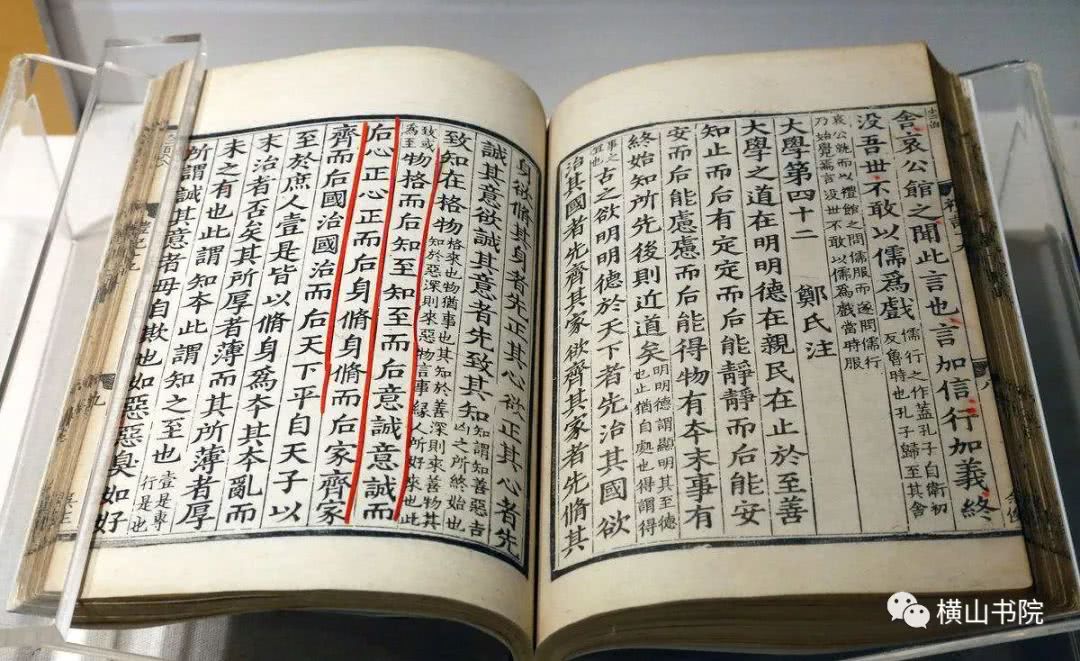 舍哀公館之聞此言也言加信行加義終
没吾丗不敢以儒爲戲儒行之作蓋孔子自衛初反魯時也孔子歸至其舍
哀公就而以禮館之問儒服而遂問儒行乃始覺焉言没世不敢以儒爲戲當時服
大學第四十二 鄭氏注
大學之道在明明德在親民在止於至善
知止而后有定定而后能靜靜而后能安
安而后能慮慮而后能得物有夲末事有
終始知所先後則近道矣明明德謂顯明其至德也止猶自處也得謂得
事之宜也古之欲明明德於天下者先治其國欲
治其國者先齊其家欲齊其家者先脩其
身欲脩其身者先正其心欲正其心者先
誠其意欲誠其意者先致其知知謂知善惡吉凶之所終始也
致知在格物格來也物猶事也其知於善深則來善物其知於惡深則來惡物言事緣人所好來也此
致或為至物格而后知至知至而后意誠意誠而
后心正心正而后身脩身脩而后家齊家
齊而后國治國治而后天下平自天子以
至於庶人壹是皆以脩身爲夲其夲亂而
末治者否矣其所厚者薄而其所薄者厚
未之有也此謂知本此謂知之至也壹是專行是也
所謂誠其意者毋自欺也如惡惡臭如好
横山书院